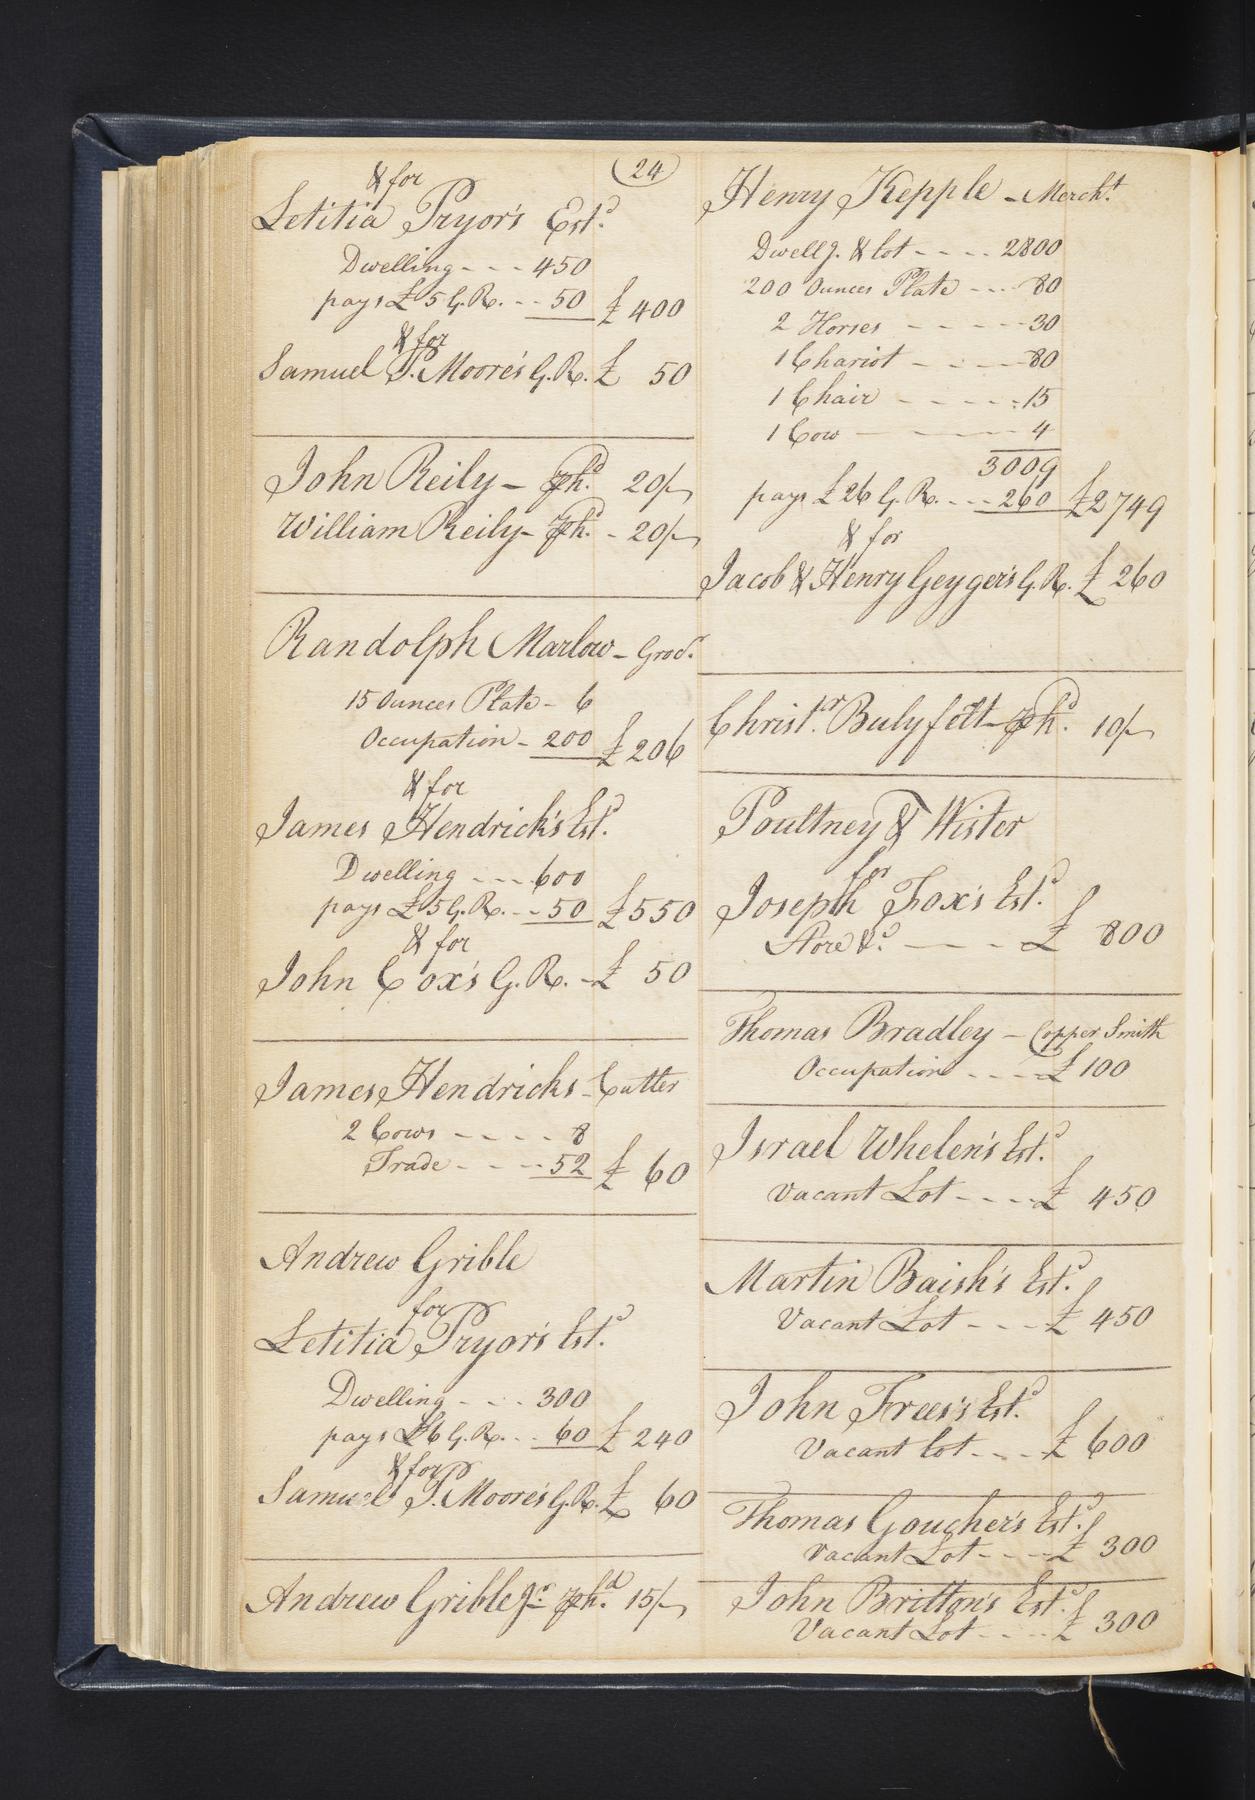 24
& for
Letitia Pryor's Est.d
Dwelling - - - 450
pays £5 G.R. - - 50 £ 400
& for
Samuel P. Moore's G.R. £ 50
John Reily - phd. 20/-
William Reily - phd. - 20/-
Randolph Marlow - Grocr.
15 Ounces Plate - 6
Occupation - 200 £ 206
& for
James Hendrick's Est.d
Dwelling - - - 600
pays £5 G.R. - - 50 £550
& for
John Cox's G.R. - £ 50
James Hendricks - Cutler
2 Cows - - - - 8
Trade - - - - 52 £ 60
Andrew Grible
for
Letitia Pryor's Est.d
Dwelling - - - 300
pays £6 G.R. - - 60 £ 240
& for
Samuel P. Moore's G.R. £ 60
Andrew Grible Jr. phd. 15/-
Henry Kepple - Mercht.
Dwellg. & lot - - - - 2800
200 Ounces Plate - - - 80
2 Horses - - - - - 30
1 Chariot - - - - 80
1 Chair - - - - - 15
1 Cow - - - 4
3009
pays £26 G.R. - - - 260 £2749
& for
Jacob & Henry Geyger's G.R. £ 260
Christr. Bulyfett - phd. 10/-
Poultney & Wister
for
Joseph Fox's Est.d
Store &c. - - - £ 800
Thomas Bradley - Copper Smith
Occupation - - - - £100
Israel Whelen's Est.d
Vacant Lot - - - - £ 450
Martin Baish's Est.d
Vacant Lot - - - £ 450
John Frees's Est.d
Vacant lot - - - £ 600
Thomas Goucher's Est.d
Vacant Lot - - - - £ 300
John Britton's Est.d
Vacant Lot - - - - £ 300